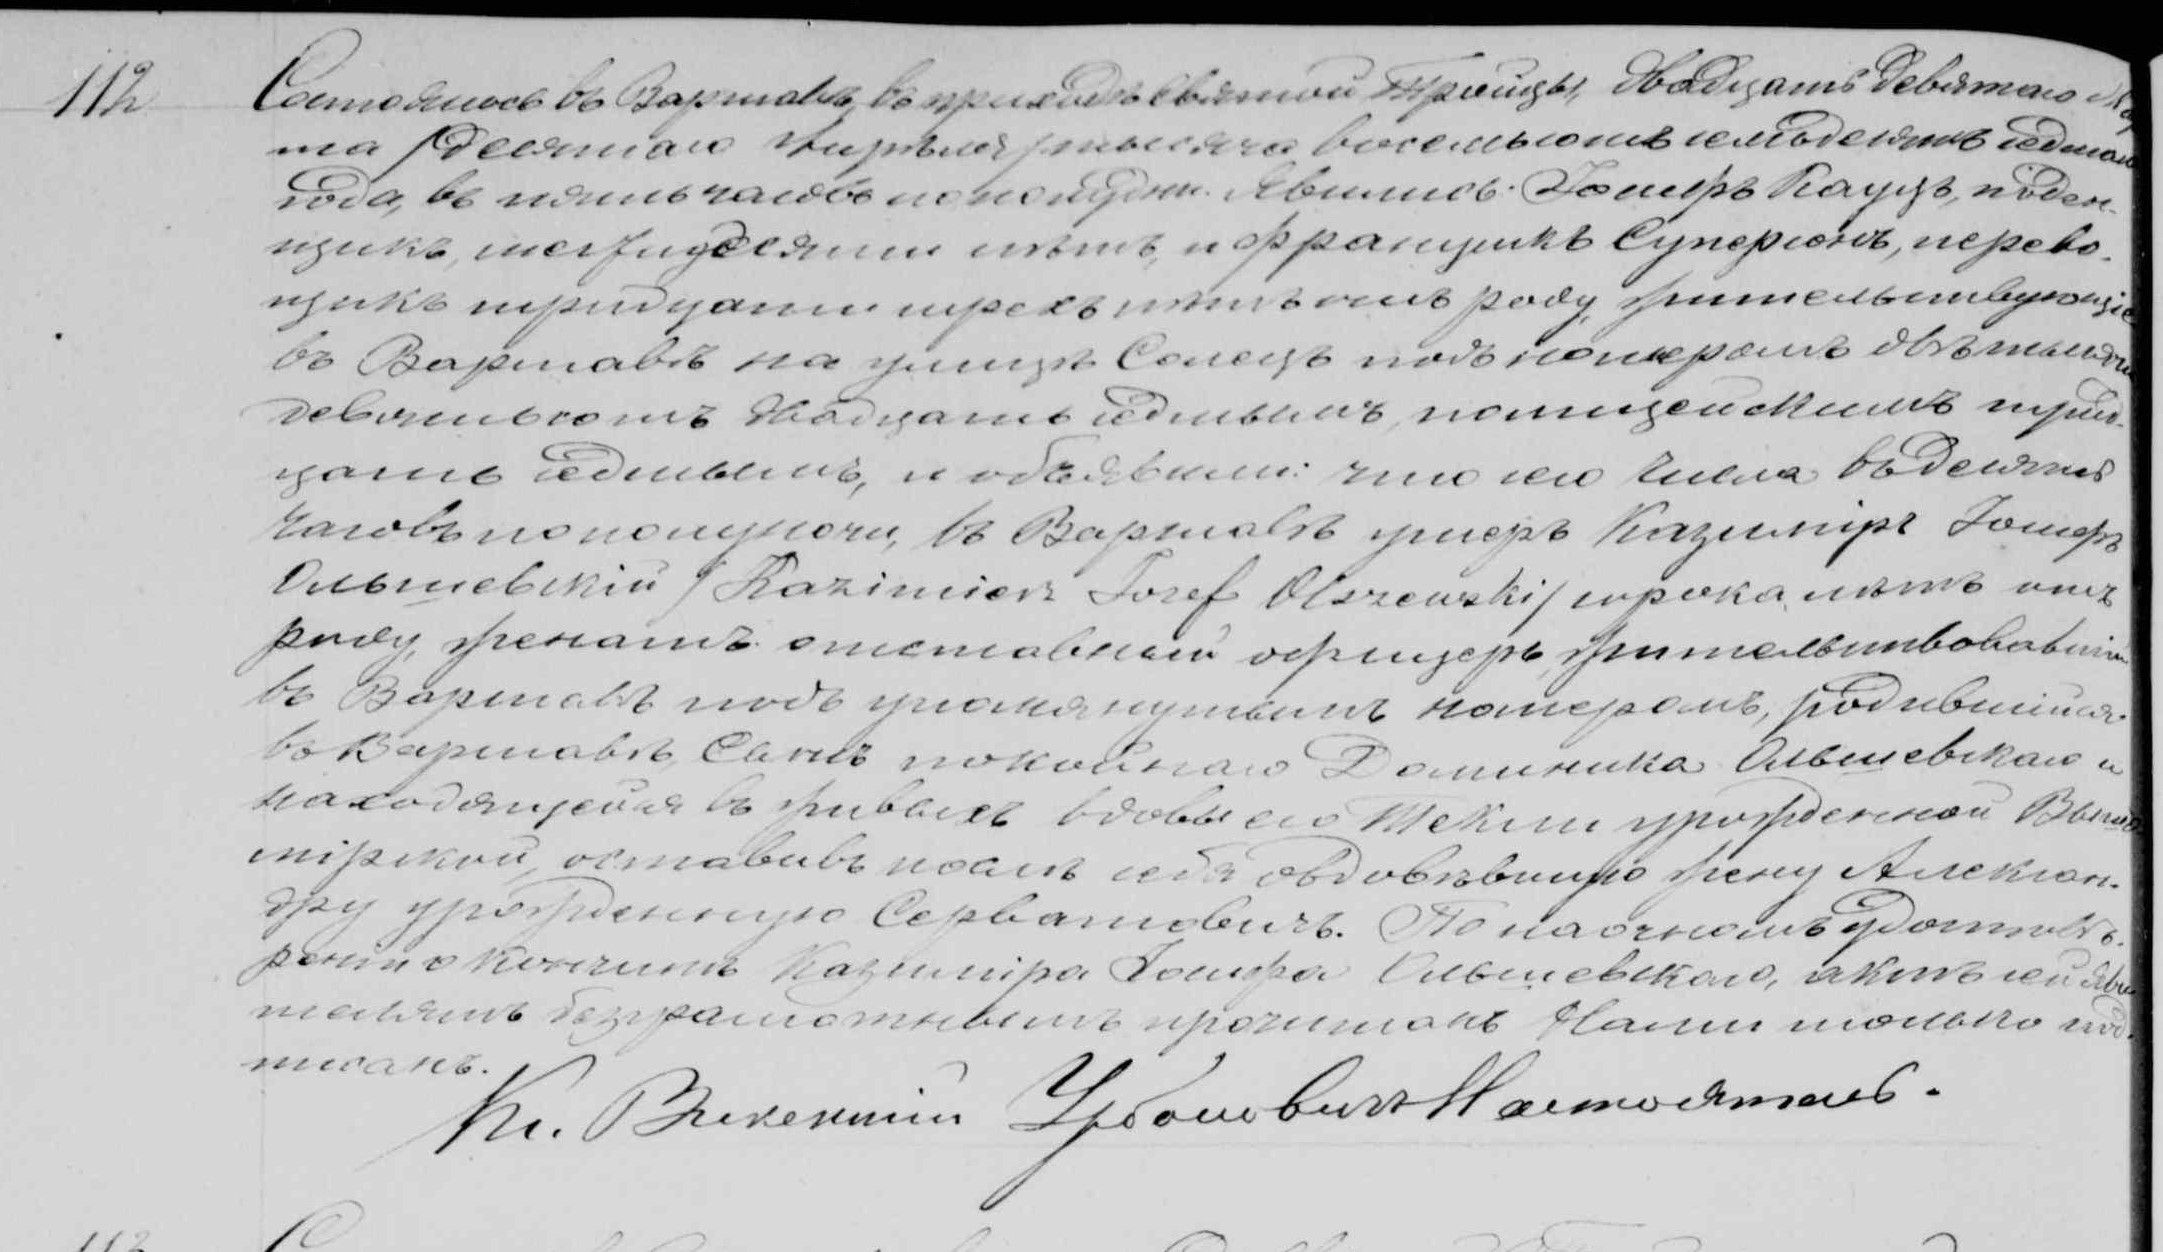 112
Состоялось въ Варшавѣ, въ приходѣ Святой Троицы, двадцать девятаго Мар
та /десятаго Апрѣля/ тысяча восемьсотъ семьдесятъ седьмаго
года, въ пять часовъ пополудни. Явились: Іосифъ Кауцъ, поден-
щикъ, шестидесяти лѣтъ, и Францишкъ Суперсонъ, перево-
щикъ тридцати трехъ лѣтъ отъ роду, жительствующіе
въ Варшавѣ на улицѣ Солецъ подъ номеромъ двѣ тысячи
девятьсотъ двадцать седьмымъ, полицейскимъ трид-
цать седьмымъ, и объявили: что сего числа въ десять
часовъ пополуночи, въ Варшавѣ умеръ Казиміръ Іосифъ
Ольшевскій /Kazimierz Józef Olszewski/ сорока лѣтъ отъ
роду, женатъ отставный офицеръ, жительствовавшій
въ Варшавѣ подъ упомянутымъ номеромъ, родившійся
въ Варшавѣ, Сынъ покойнаго Доминика Ольшевскаго и
находящейся въ живыхъ вдовы его Текли урожденной
мірской, оставивъ послѣ себя овдовѣвшую жену Алексан-
дру урожденную Серватовичъ. По наочномъ удостовѣ-
реніи о кончинѣ Казиміра Іосифа Ольшевскаго, актъ сей яви
телямъ безграмотнымъ прочитанъ Нами только под-
писанъ.
Кс. Викентій Урбановичъ Настоятель.
113